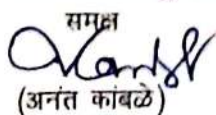 समक्ष
(अनंत कांबळे)